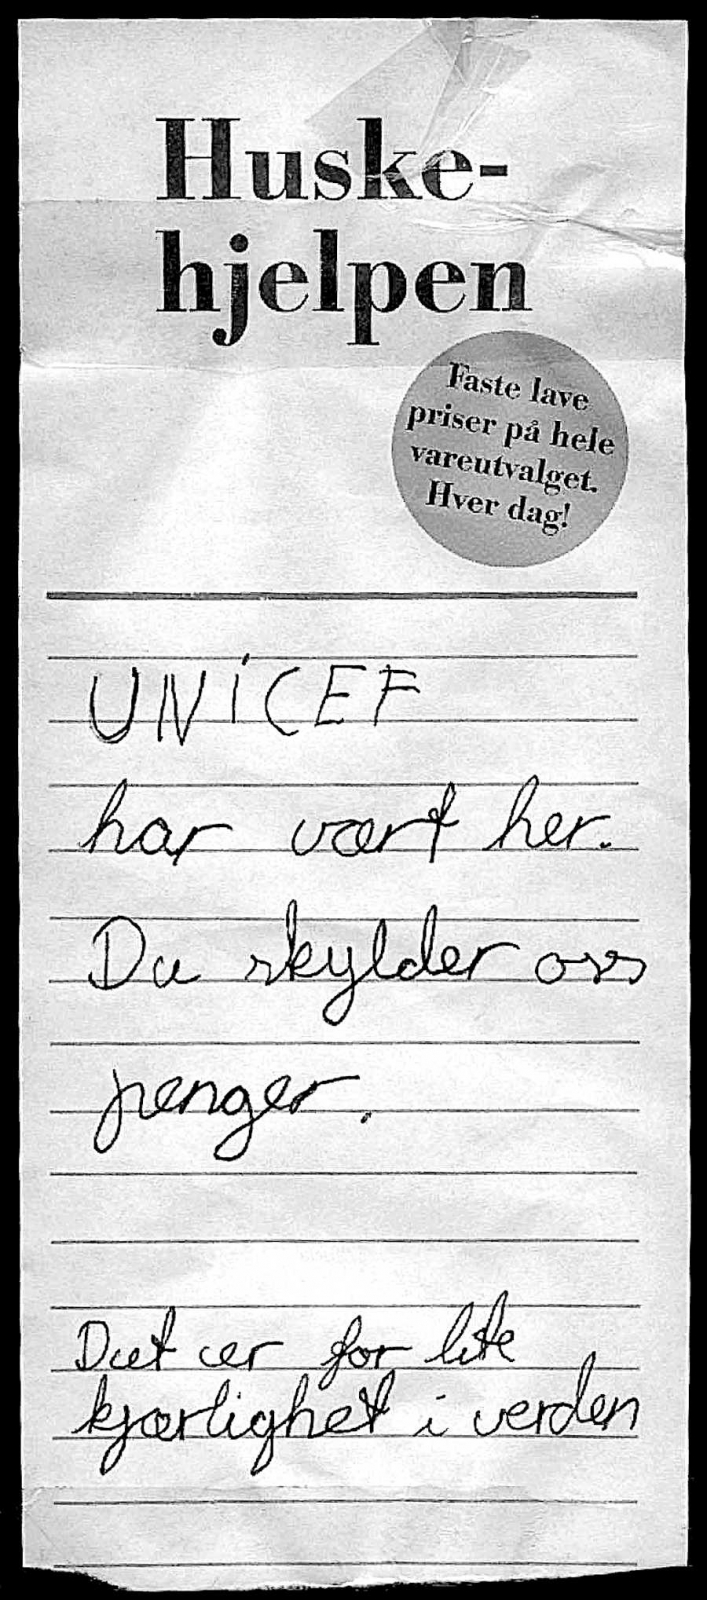 Huske-
hjelpen
Faste lave
priser på hele
vareutvalget.
Hver dag!
UNiCEF
har vært her.
Du skylder oss
penger.
Det er for lite
kjærlighet i verden